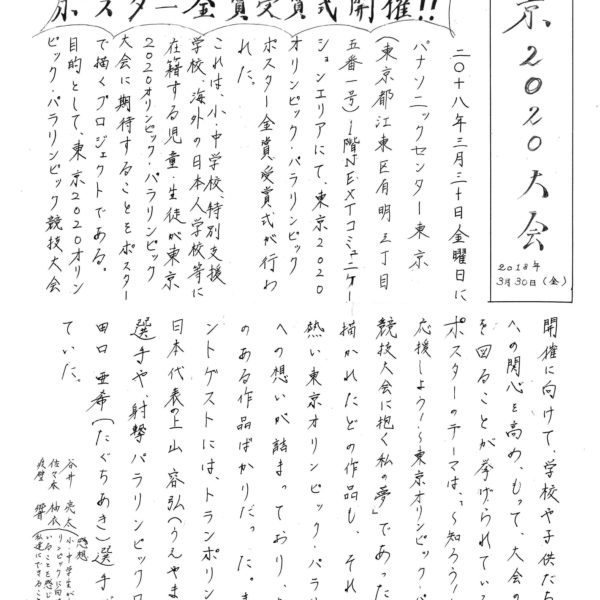 京2020大会
2018年
3月30日(金)
京ポスター金賞受賞式開催!!
二〇十八年三月三十日金曜日に
パナソニックセンター東京
(東京都江東区有明三丁目
五番一号)1階NEXTコミュニケー
ションエリアにて、東京2020
オリンピック・パラリンピック
ポスター金賞受賞式が行わ
れた。
これは、小・中学校、特別支援
学校、海外の日本人学校等に
在籍する児童・生徒が東京
2020オリンピック・パラリンピック
大会に期待することをポスター
で描くプロジェクトである。
目的として、東京2020オリン
ピック・パラリンピック競技大会
開催に向けて、学校や子供たち
への関心を高め、もって、大会の
を図ることが挙げられてい
ポスターのテーマは、「〜知ろう!
応援しよう!〜東京オリンピック・パ
競技大会に抱く私の夢」であった
描かれたどの作品も、それ
熱い東京オリンピック・パラリ
への想いが詰まっており、
のある作品ばかりだった。ま
ントゲストには、トランポリン
日本代表の上山容弘(うえやま
選手や、射撃パラリンピック日
田口亜希(たぐちあき)選手が
ていた。
谷井亮太
佐々木柚衣
感想
小・中学生が
リンピックに向け
いることを感じ
私達にできるこ